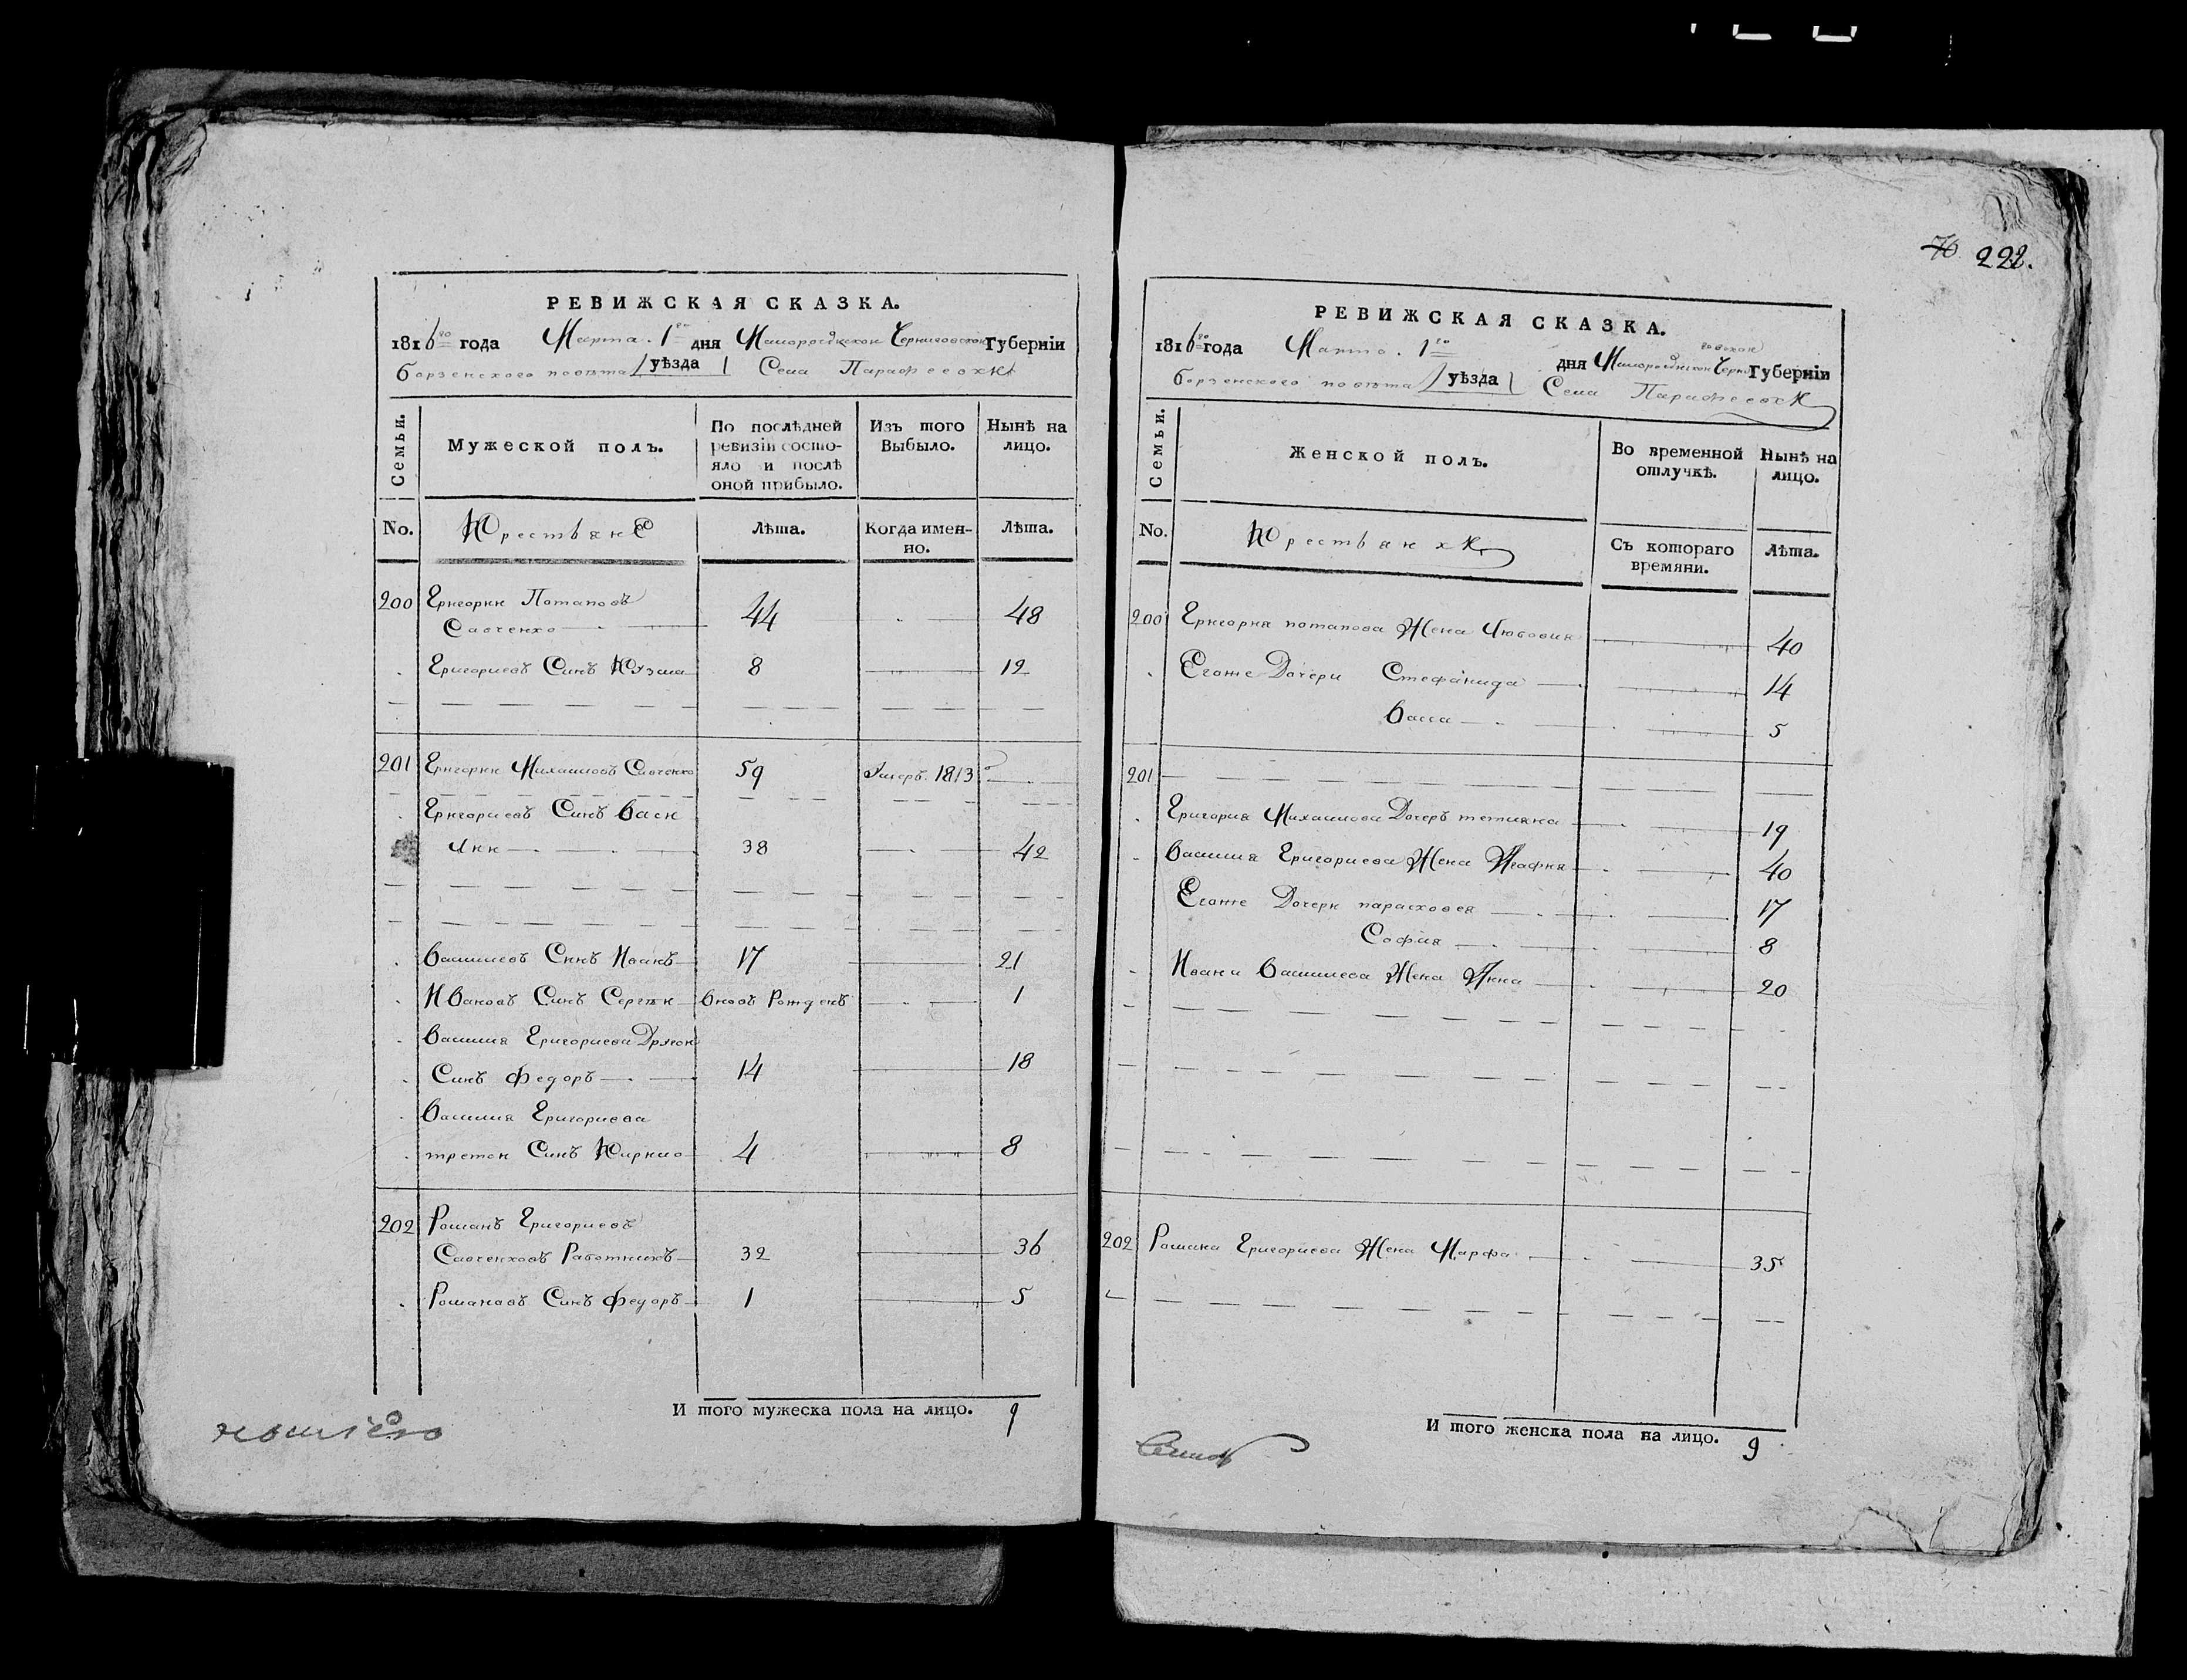 70 222.
РЕВИЖСКАЯ СКАЗКА.
1816го года Марта 1го дня Малороссийской Черниговской Губернїи
борзенского повѣта (уѣзда) Села Парафеевки
Семьи.
Мужеской полъ.
По послѣдней ревизїи состояло и послѣ оной прибыло.
Изъ того Выбыло.
Нынѣ на лицо.
No.
Крестьяне
Лѣта.
Когда именно.
Лѣта.
200 Григорий Потаповъ
Савченко 44 48
Григориевъ Синъ Кузма 8 12
201 Григорий Михаиловъ Савченко 59 Умеръ 1813го
Григориевъ Синъ Васи
лии 38 42
Василиевъ Синъ Иванъ 17 21
Ивановъ Синъ Сергѣи вновъ Рожденъ 1
Василия Григориева Другои
Синъ Федоръ 14 18
Василия Григориева
третеи Синъ Кирило 4 8
202 Романъ Григориевъ
Савченковъ Работникъ 32 36
Романовъ Синъ Федоръ 1 5
И того мужеска пола на лицо. 9
РЕВИЖСКАЯ СКАЗКА.
1816го года Марта 1го дня Малороссийской Черниговской Губернїи
борзенского повѣта (уѣзда) Села Парафеевки
Семьи.
Женской полъ.
Во временной отлучкѣ.
Нынѣ на лицо.
No.
Крестьянки
Съ котораго времяни.
Лѣта.
200 Григория потапова Жена Любовия 40
Егоже Дочери Стефанида 14
Васса 5
201
Григория Михаилова Дочеръ тетияна 19
Василия Григориева Жена Агафия 40
Егоже Дочери парасковея 17
София 8
Ивана Василиева Жена Анна 20
202 Романа Григориева Жена Марфа 35
И того женска пола на лицо. 9